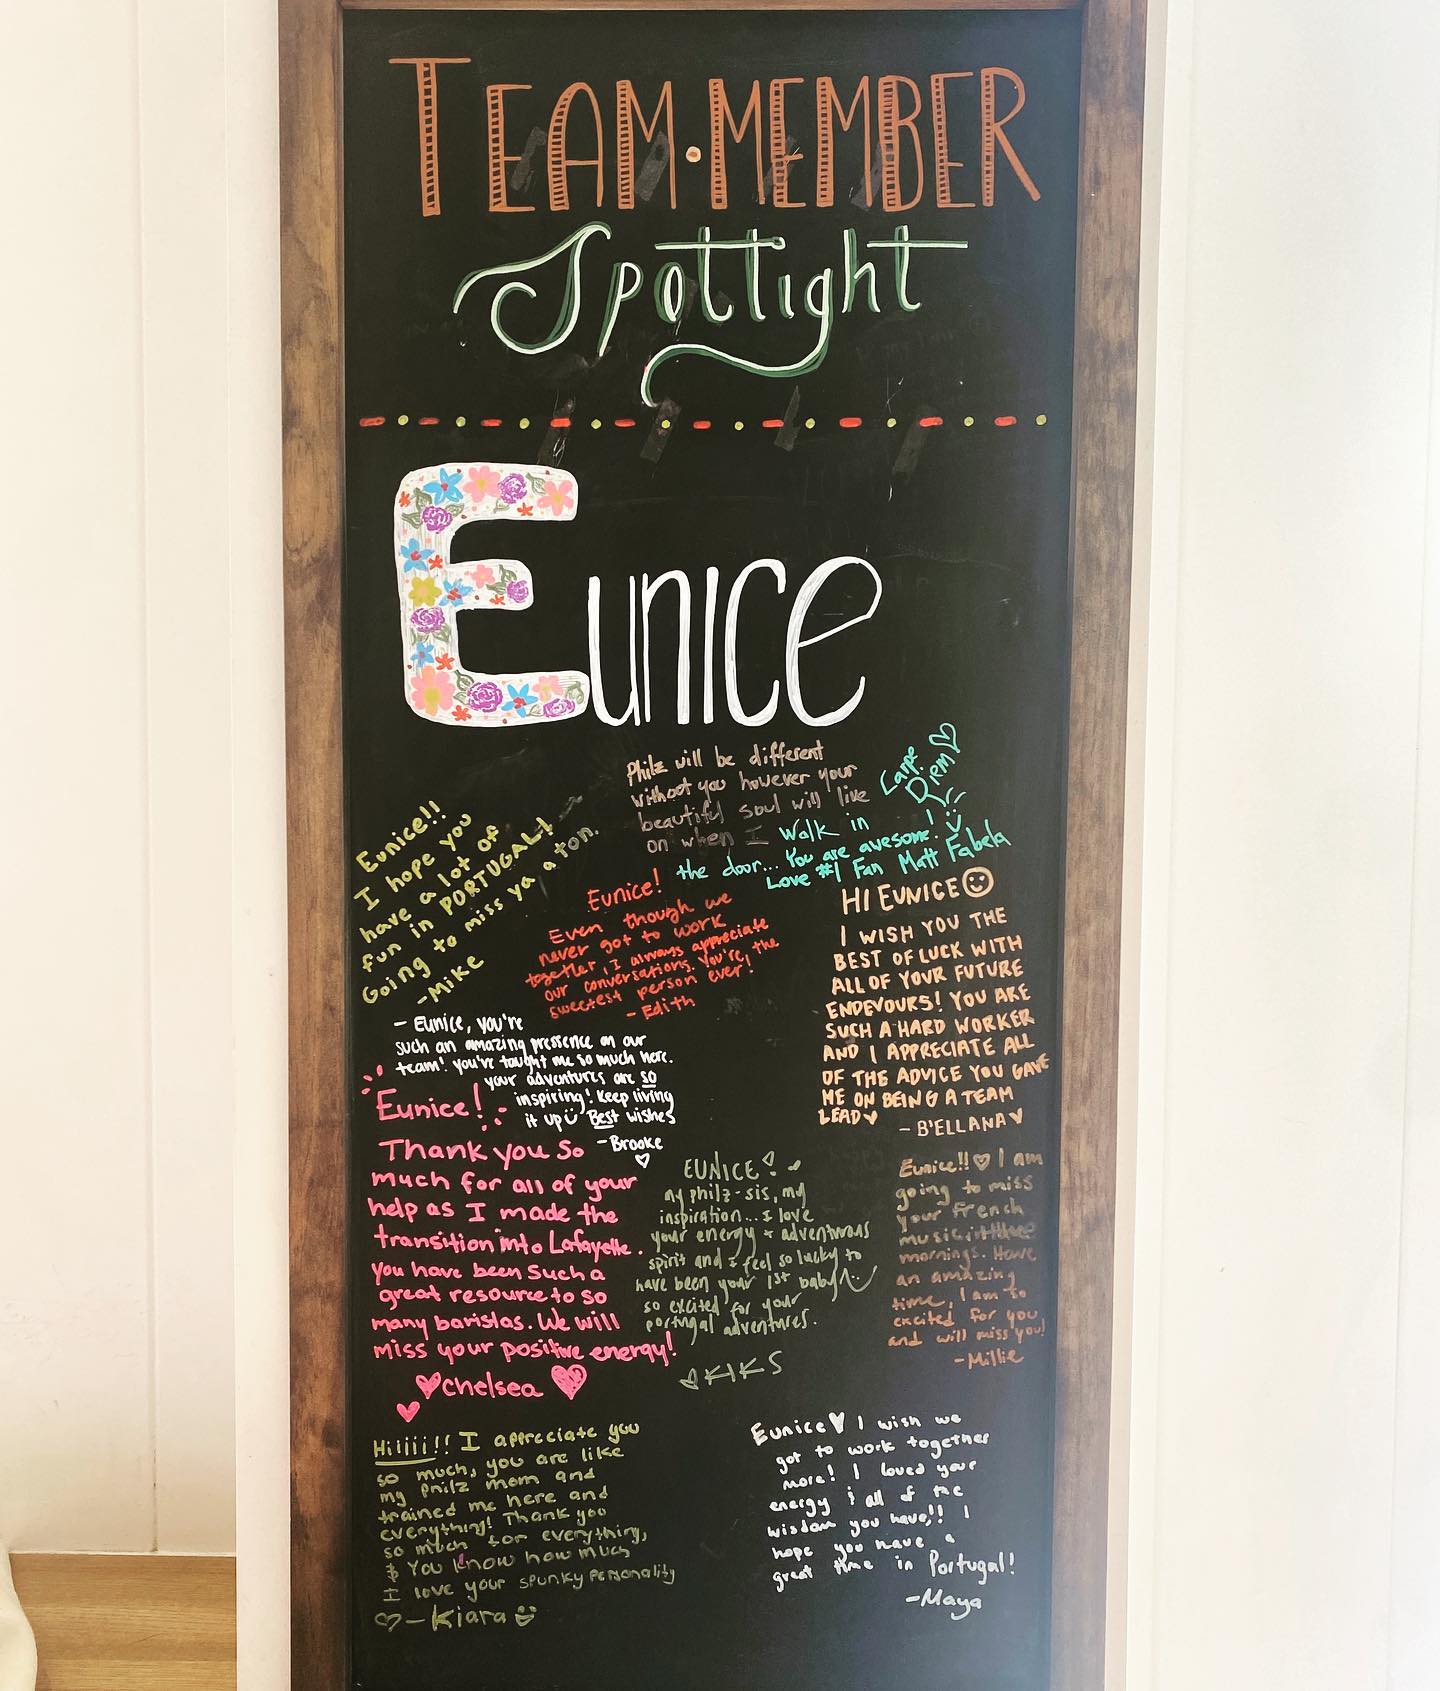 TEAM • MEMBER
Spotlight
Eunice
Philz will be different
without you however your
beautiful soul will live
on when I Walk in
the door... You are awesome!
Love #1 Fan Matt Fabela
Carpe
Diem
Eunice!!
I hope you
have a lot of
fun in PORTUGAL!
Going to miss ya a ton.
-Mike
Eunice!
Even though we
never got to work
together, I always appreciate
our conversations. You're, the
sweetest person ever!
- Edith
HI EUNICE
I WISH YOU THE
BEST OF LUCK WITH
ALL OF YOUR FUTURE
ENDEVOURS! YOU ARE
SUCH A HARD WORKER
AND I APPRECIATE ALL
OF THE ADVICE YOU GAVE
ME ON BEING A TEAM
LEAD
- B'ELLANA
- Eunice, you're
such an amazing pressence on our
team! you've taught me so much here.
your adventures are so
inspiring! Keep living
it up Best wishes
-Brooke
Eunice!
Thank you so
much for all of your
help as I made the
transition into Lafayette.
you have been such a
great resource to so
many baristas. We will
miss your positive energy!
chelsea
EUNICE!
my philz-sis, my
inspiration... I love
your energy + adventurous
spirit and I feel so lucky to
have been your 1st baby
so excited for your
portugal adventures.
KIKS
Eunice!! I am
going to miss
your french
music in the
mornings. Have
an amazing
time, I am so
excited for you
and will miss you!
-Millie
Hiiiii!! I appreciate you
so much, you are like
my philz mom and
trained me here and
everything! Thank you
so much for everything,
& You know how much
I love your spunky personality
- Kiara
Eunice I wish we
got to work together
more! I loved your
energy & all of the
wisdom you have!! I
hope you have a
great time in Portugal!
-Maya